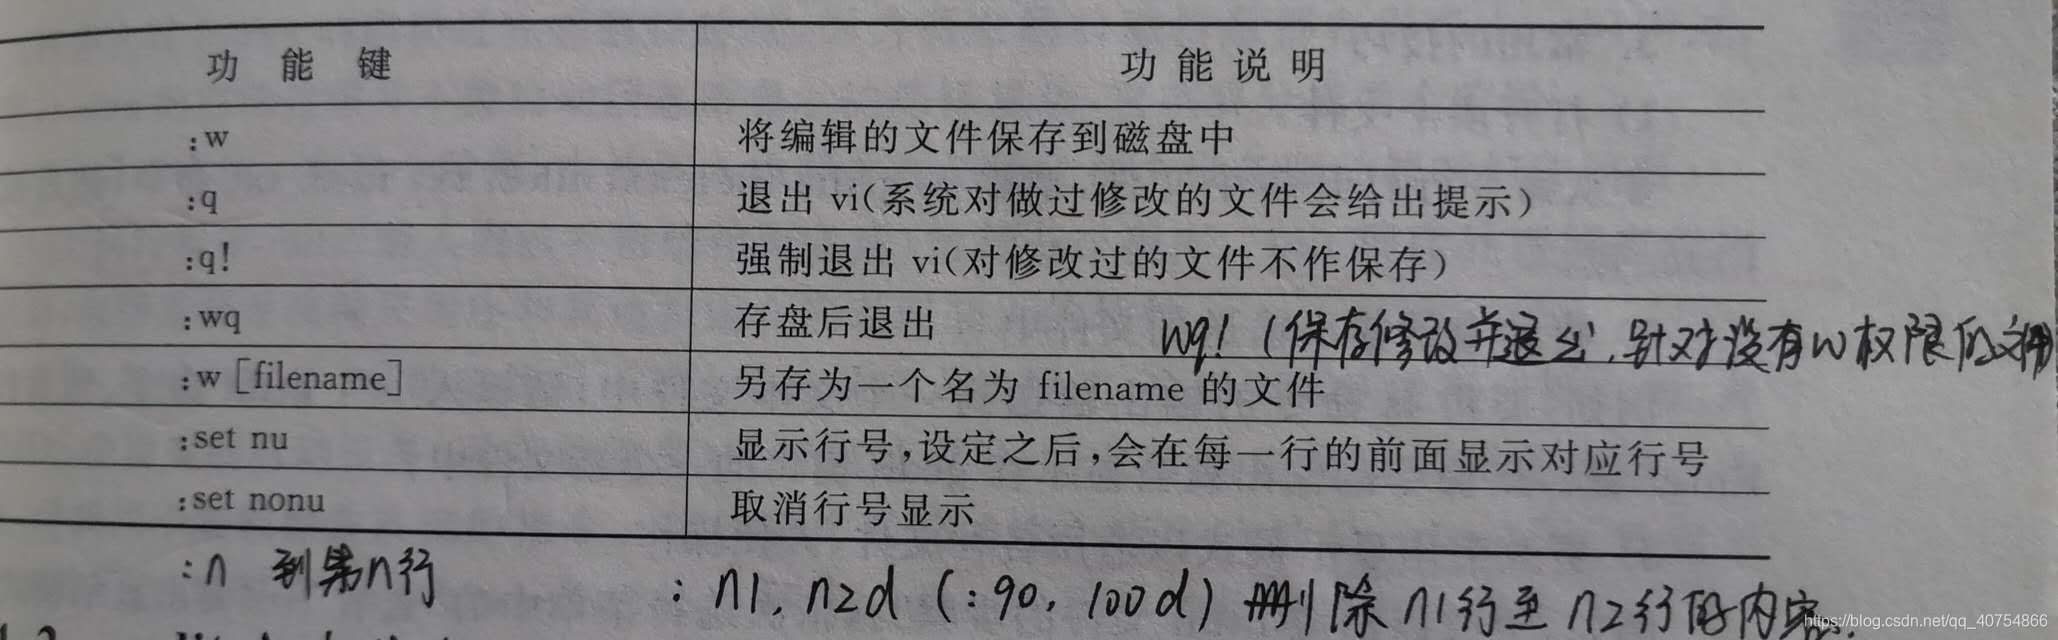 功 能 键 功 能 说 明
:w 将编辑的文件保存到磁盘中
:q 退出 vi(系统对做过修改的文件会给出提示)
:q! 强制退出 vi(对修改过的文件不作保存)
:wq 存盘后退出 wq! (保存修改并退出, 针对没有w权限的文件
:w [filename] 另存为一个名为 filename 的文件
:set nu 显示行号,设定之后,会在每一行的前面显示对应行号
:set nonu 取消行号显示
:n 到第n行 : n1, n2d (:90, 100d) 删除 n1行至 n2行的内容.
https://blog.csdn.net/qq_40754866